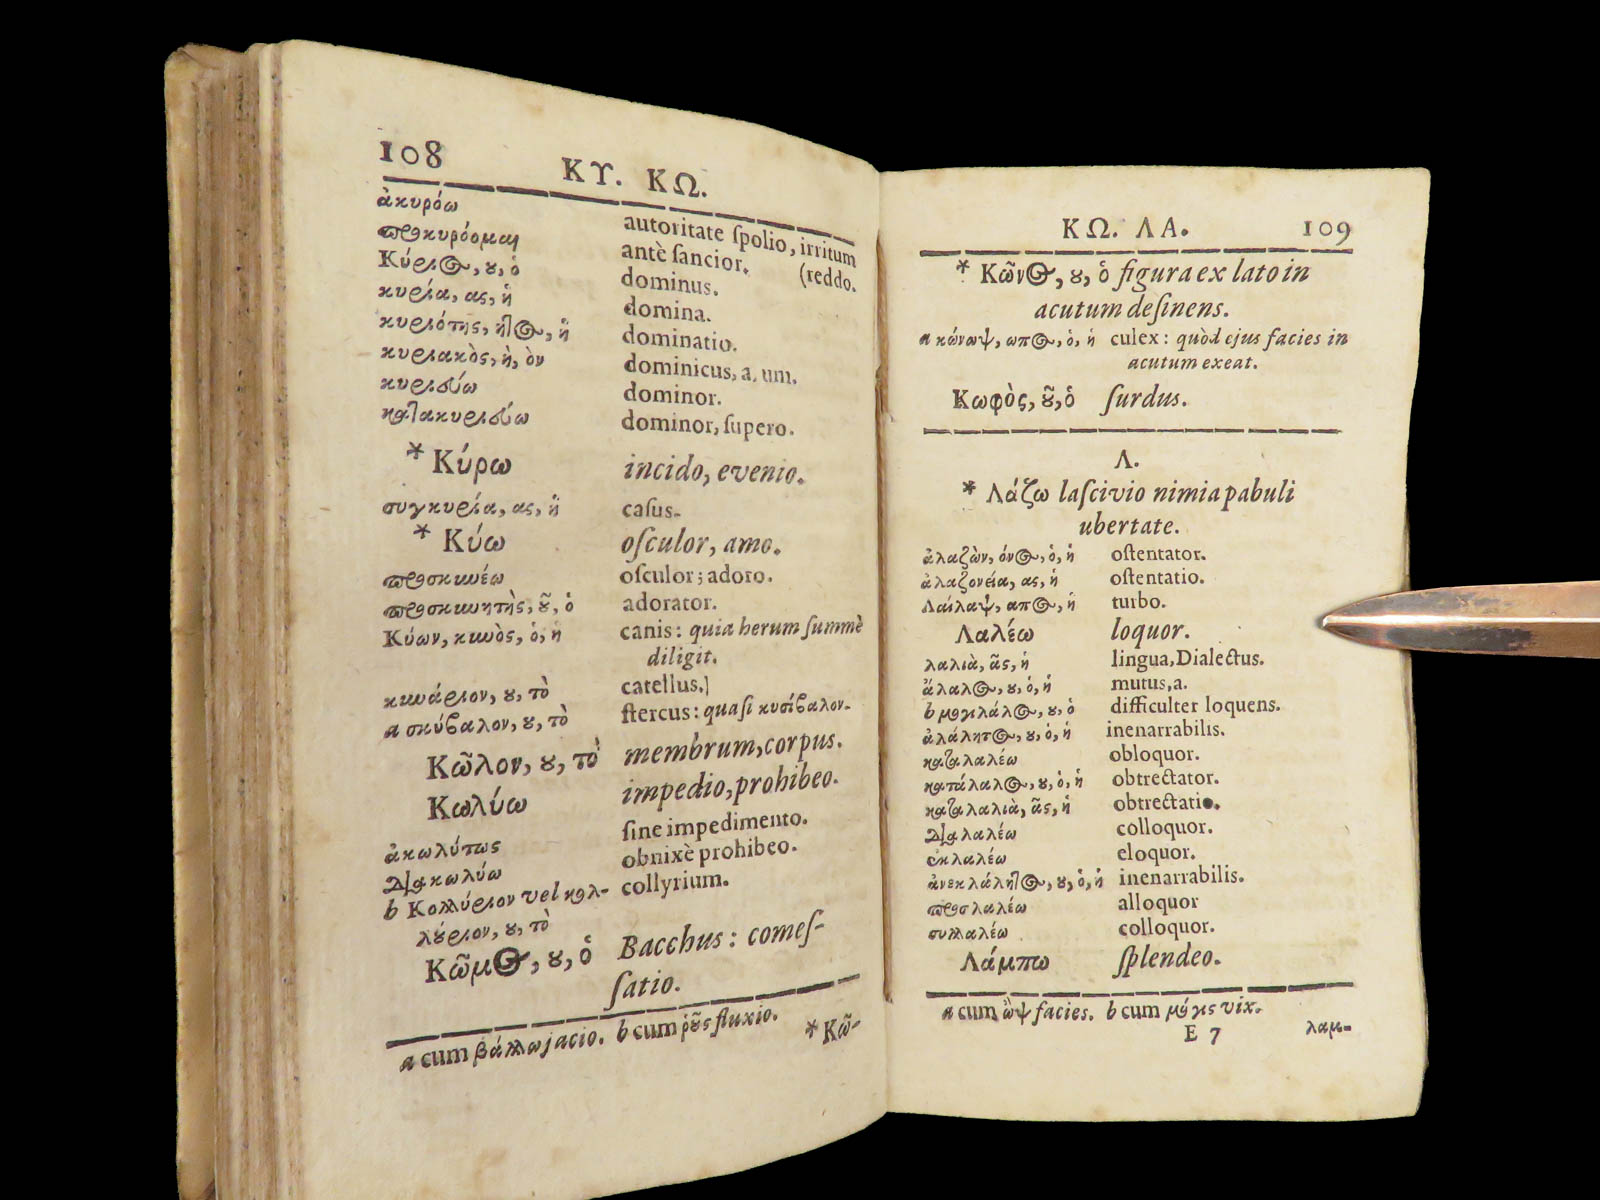 108 ΚΥ. ΚΩ.
ἀκυρόω autoritate ſpolio, irritum
προκυρόομαι antè ſancior. (reddo.
Κύριος, ου, ὁ dominus.
κυρία, ας, ἡ domina.
κυριότης, ητος, ἡ dominatio.
κυριακὸς, ὴ, ὸν dominicus, a, um.
κυριεύω dominor.
κατακυριεύω dominor, ſupero.
* Κύρω incido, evenio.
συγκυρία, ας, ἡ caſus.
* Κύω oſculor, amo.
προσκυνέω oſculor; adoro.
προσκυνητὴς, οῦ, ὁ adorator.
Κύων, κυνὸς, ὁ, ἡ canis: quia herum ſummè
diligit.
κυνάριον, ου, τὸ catellus.
a σκύβαλον, ου, τὸ ſtercus: quaſi κυσίβαλον.
Κῶλον, ου, τὸ membrum, corpus.
Κωλύω impedio, prohibeo.
ἀκωλύτως ſine impedimento.
διακωλύω obnixè prohibeo.
b Κολλύριον vel κολ- collyrium.
λούριον, ου, τὸ
Κῶμος, ου, ὁ Bacchus: comeſ-
ſatio.
a cum βάλλω jacio. b cum ῥοῦς fluxio.
* Κῶ-
ΚΩ. ΛΑ. 109
* Κῶνος, ου, ὁ figura ex lato in
acutum deſinens.
a κώνωψ, ωπος, ὁ, ἡ culex: quòd ejus facies in
acutum exeat.
Κωφὸς, οῦ, ὁ ſurdus.
Λ.
* Λάζω laſcivio nimia pabuli
ubertate.
ἀλαζὼν, όνος, ὁ, ἡ oſtentator.
ἀλαζονεία, ας, ἡ oſtentatio.
Λαίλαψ, απος, ἡ turbo.
Λαλέω loquor.
λαλιὰ, ᾶς, ἡ lingua, Dialectus.
ἄλαλος, ου, ὁ, ἡ mutus, a.
b μογιλάλος, ου, ὁ difficulter loquens.
ἀλάλητος, ου, ὁ, ἡ inenarrabilis.
καταλαλέω obloquor.
κατάλαλος, ου, ὁ, ἡ obtrectator.
καταλαλιὰ, ᾶς, ἡ obtrectatio.
διαλαλέω colloquor.
ἐκλαλέω eloquor.
ἀνεκλάλητος, ου, ὁ, ἡ inenarrabilis.
προσλαλέω alloquor
συλλαλέω colloquor.
Λάμπω ſplendeo.
a cum ὢψ facies. b cum μόγις vix.
E 7 λαμ-